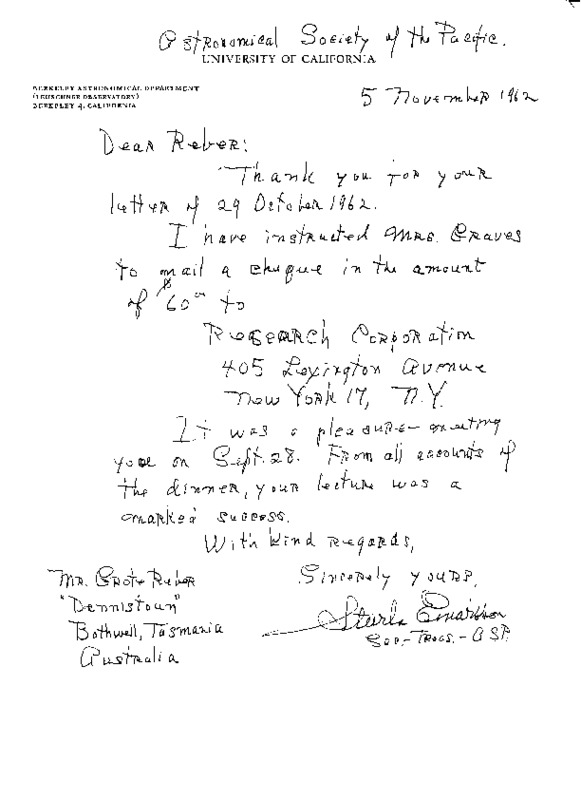 Astronomical Society of the Pacific.
UNIVERSITY OF CALIFORNIA
BERKELEY ASTRONOMICAL DEPARTMENT
(LEUSCHNER OBSERVATORY)
BERKELEY 4, CALIFORNIA
5 November 1962
Dear Reber:
Thank you for your
letter of 29 October 1962.
I have instructed Mrs. Graves
to mail a cheque in the amount
of $60.00 to
Research Corporation
405 Lexington Avenue
New York 17, N.Y.
It was a pleasure meeting
you on Sept. 28. From all accounts of
the dinner, your lecture was a
marked success.
With kind regards,
Sincerely yours,
Mr. Grote Reber
"Dennistoun"
Bothwell, Tasmania
Australia
Sturla Einarsson
Sec.-Treas.-ASP.